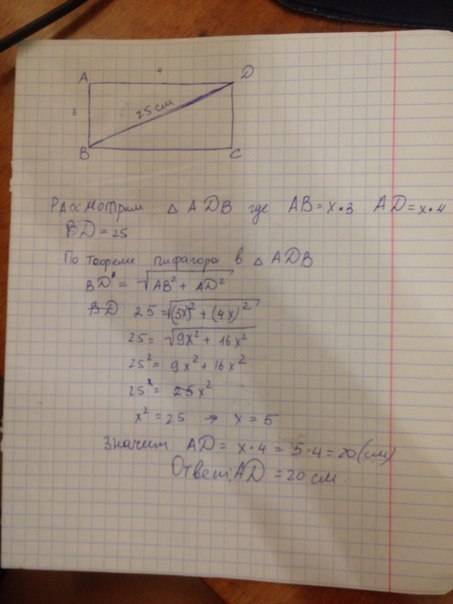 A D
25 см
B C
Рассмотрим △ ADB где AB = x · 3 AD = x · 4
BD = 25
По теореме пифагора в △ ADB
BD² = √AB² + AD²
BD 25 = √(3x)² + (4x)²
25 = √9x² + 16x²
25² = 9x² + 16x²
25² = 25x²
x² = 25 ⇒ x = 5
Значит AD = x · 4 = 5 · 4 = 20 (см)
Ответ: AD = 20 см